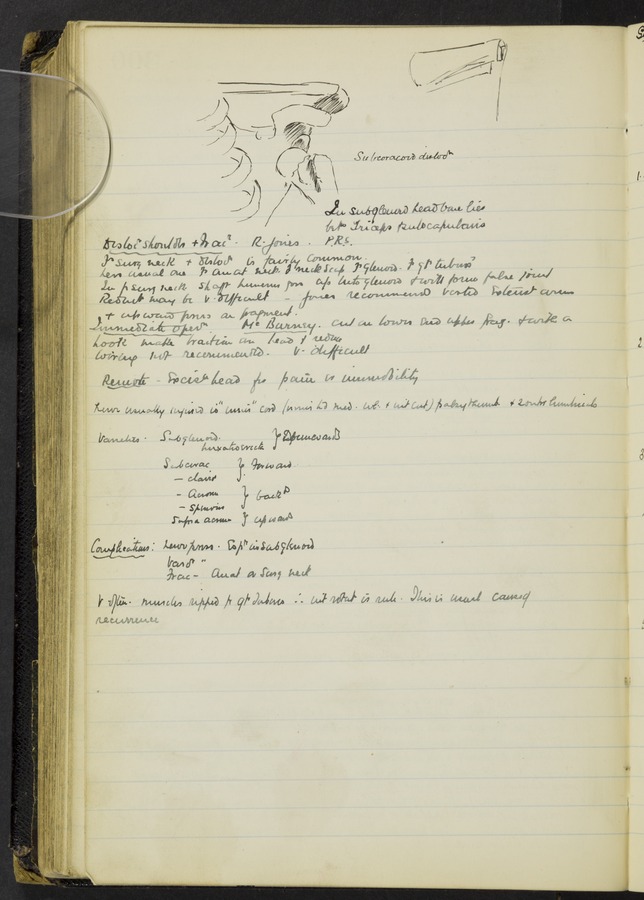 Subcoracoid disloc
In subglenoid head bone lies
bet Triceps & subscapularis
Disloc shoulder + Frac. R. Jones. P.R.S.
F surg neck + disloc is fairly common.
Less usual are F anat neck. F neck scap F glenoid. F gt tuberos
In F surg neck shaft humerus up into glenoid & will form false joint
Reduct may be v. difficult - Jones recommend extend arm
+ upward press on fragment.
Immediate oper. McBurney. cut on lower end upper frag. & with a
hook make traction on head & reduce
not recommended. V. difficult
Remote - Excise head for pain or immobility
Nerve usually injured is "inner" cord
Varieties. Subglenoid } Downwards
luxatio erecta
Subcorac } Forward
- clavic
- Acrom } back
- Spinous
Supra acrom } upward
Complications: Nerve press. Esp in subglenoid
Vasc "
Frac - Anat or Surg neck
V. often muscles ripped fr gt tuberos ∴ is rule. This is usual cause of
recurrence